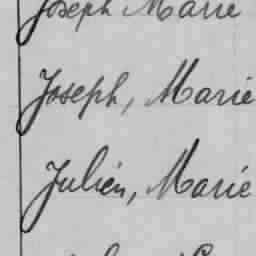 Joseph Marie
Joseph, Marie
Julien, Marie